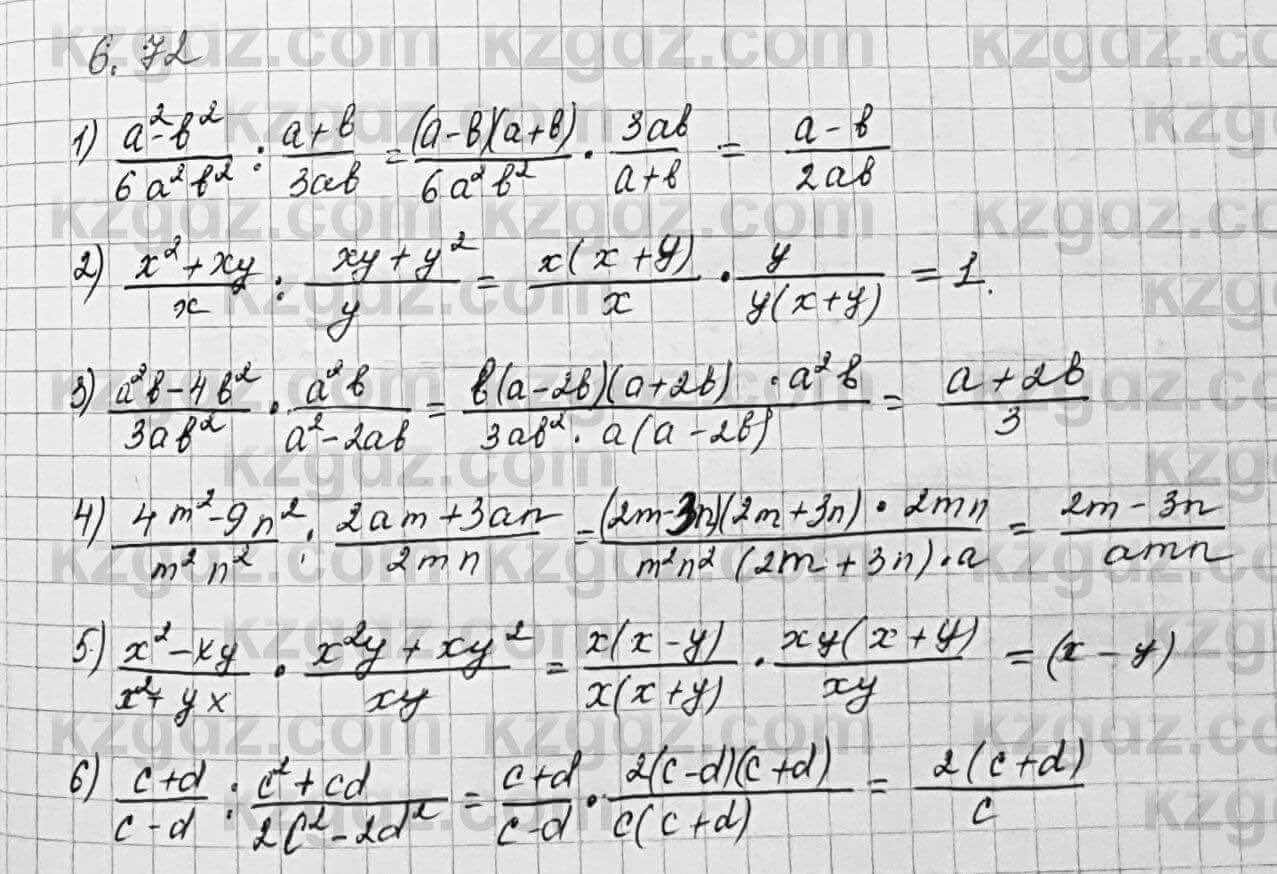 6.72
1) \frac{a^2-b^2}{6a^2b^2} : \frac{a+b}{3ab} = \frac{(a-b)(a+b)}{6a^2b^2} \cdot \frac{3ab}{a+b} = \frac{a-b}{2ab}
2) \frac{x^2+xy}{x} : \frac{xy+y^2}{y} = \frac{x(x+y)}{x} \cdot \frac{y}{y(x+y)} = 1.
3) \frac{a^2b-4b^2}{3ab^2} \cdot \frac{a^2b}{a^2-2ab} = \frac{b(a-2b)(a+2b) \cdot a^2b}{3ab^2 \cdot a(a-2b)} = \frac{a+2b}{3}
4) \frac{4m^2-9n^2}{m^2n^2} : \frac{2am+3an}{2mn} = \frac{(2m-3n)(2m+3n) \cdot 2mn}{m^2n^2(2m+3n) \cdot a} = \frac{2m-3n}{amn}
5) \frac{x^2-xy}{x^2+yx} \cdot \frac{x^2y+xy^2}{xy} = \frac{x(x-y)}{x(x+y)} \cdot \frac{xy(x+y)}{xy} = (x-y)
6) \frac{c+d}{c-d} : \frac{c^2+cd}{2c^2-2d^2} = \frac{c+d}{c-d} \cdot \frac{2(c-d)(c+d)}{c(c+d)} = \frac{2(c+d)}{c}